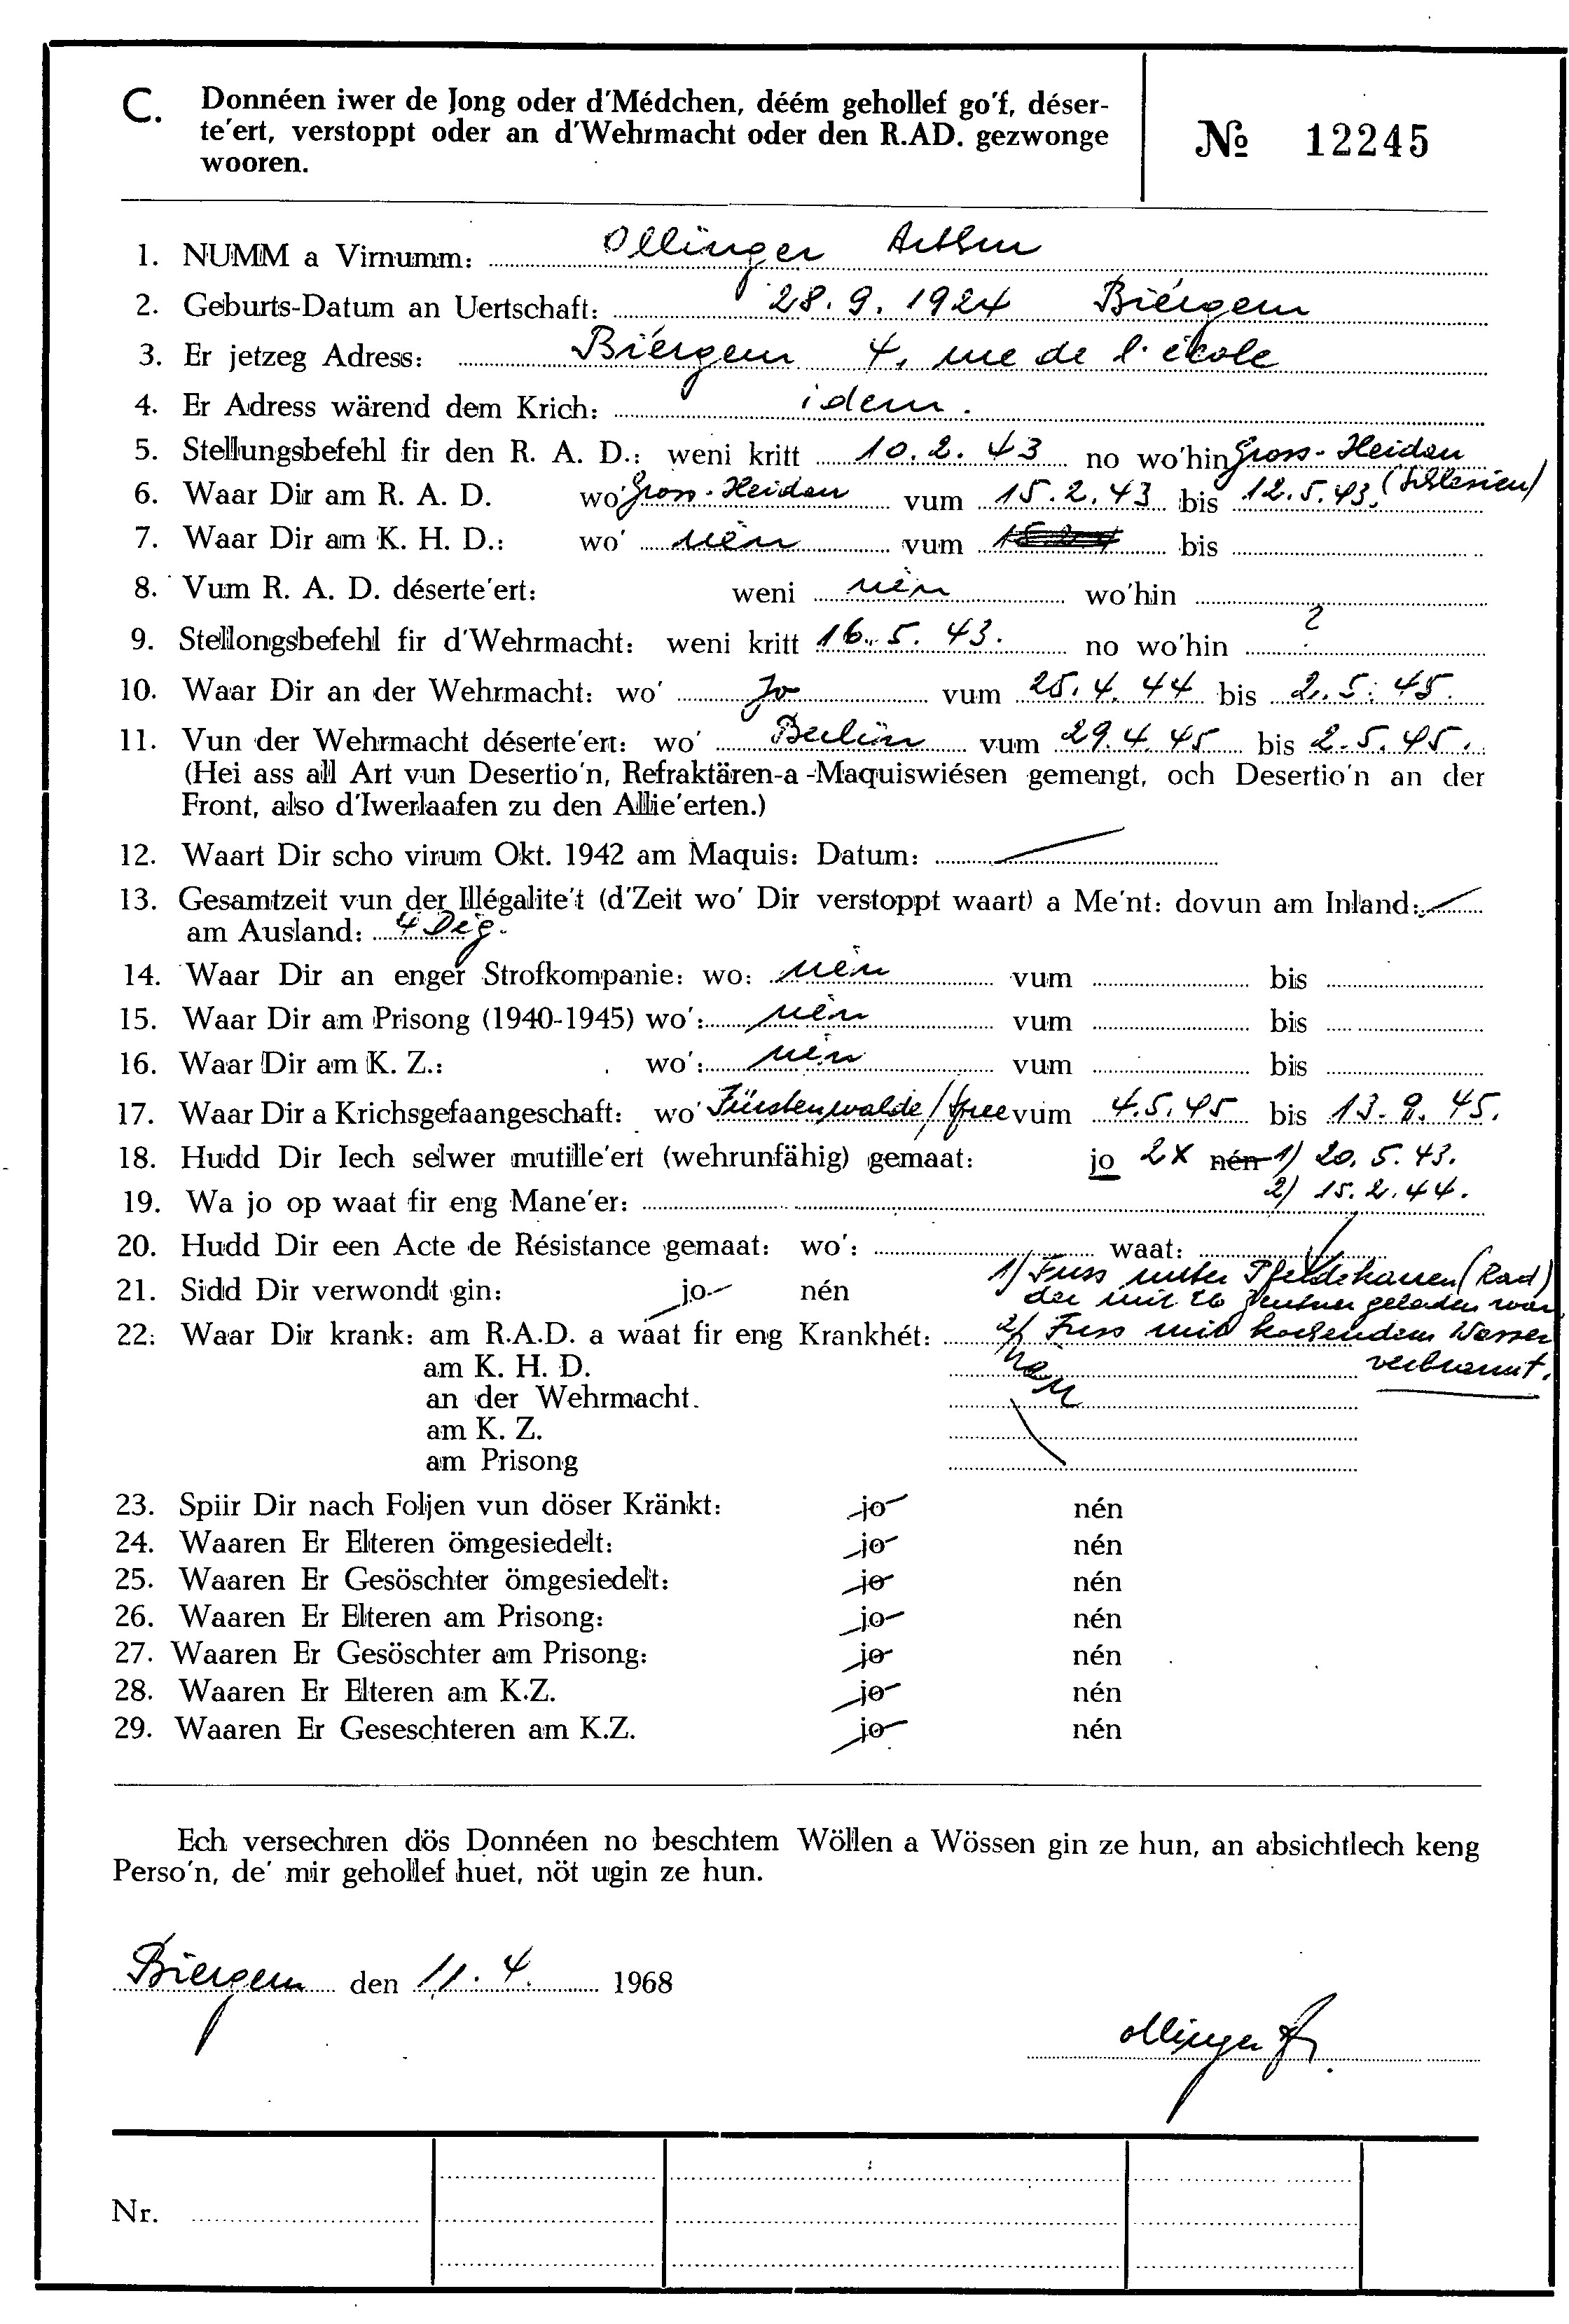 C. Donnéen iwer de Jong oder d'Médchen, déém gehollef go'f, déser-
te'ert, verstoppt oder an d'Wehrmacht oder den R.AD. gezwonge
wooren.
№ 12245
1. NUMM a Virnumm: Ollinger Arthur
2. Geburts-Datum an Uertschaft: 28.9.1924 Biergem
3. Er jetzeg Adress: Biergem 4, rue de l'école
4. Er Adress wärend dem Krich: idem.
5. Stellungsbefehl fir den R. A. D.: weni kritt 10.2.43 no wo'hin Gross-Heiden
6. Waar Dir am R. A. D. wo' Gross-Heiden vum 15.2.43 bis 12.5.43. (Schlesien)
7. Waar Dir am K. H. D.: wo' nèn vum bis
8. Vum R. A. D. déserte'ert: weni nèn wo'hin
9. Stellongsbefehl fir d'Wehrmacht: weni kritt 16.5.43. no wo'hin ?
10. Waar Dir an der Wehrmacht: wo' Jo vum 25.4.44 bis 2.5.45.
11. Vun der Wehrmacht déserte'ert: wo' Berlin vum 29.4.45 bis 2.5.45.
(Hei ass all Art vun Desertio'n, Refraktären-a-Maquiswiésen gemengt, och Desertio'n an der
Front, also d'Iwerlaafen zu den Allie'erten.)
12. Waart Dir scho virum Okt. 1942 am Maquis: Datum:
13. Gesamtzeit vun der Illégalite't (d'Zeit wo' Dir verstoppt waart) a Me'nt: dovun am Inland:
am Ausland: 4 Deg.
14. Waar Dir an enger Strofkompanie: wo: nèn vum bis
15. Waar Dir am Prisong (1940-1945) wo': nèn vum bis
16. Waar Dir am K. Z.: wo': nèn vum bis
17. Waar Dir a Krichsgefaangeschaft: wo' Fürstenwalde/Spree vum 4.5.45 bis 13.9.45.
18. Hudd Dir Iech selwer mutille'ert (wehrunfähig) gemaat: jo 2x nén 1) 20.5.43.
2) 15.2.44.
19. Wa jo op waat fir eng Mane'er:
20. Hudd Dir een Acte de Résistance gemaat: wo': waat:
1) Fuss unter Pferdekarren (Rad)
21. Sidd Dir verwondt gin: jo nén der mit 26 Zentner geladen war,
22. Waar Dir krank: am R.A.D. a waat fir eng Krankhét: 2) Fuss mit kochendem Wasser
am K. H. D. verbrannt.
an der Wehrmacht. nèn
am K. Z.
am Prisong
23. Spiir Dir nach Foljen vun döser Kränkt: jo nén
24. Waaren Er Elteren ömgesiedelt: jo nén
25. Waaren Er Gesöschter ömgesiedelt: jo nén
26. Waaren Er Elteren am Prisong: jo nén
27. Waaren Er Gesöschter am Prisong: jo nén
28. Waaren Er Elteren am K.Z. jo nén
29. Waaren Er Geseschteren am K.Z. jo nén
Ech versechren dös Donnéen no beschtem Wöllen a Wössen gin ze hun, an absichtlech keng
Perso'n, de' mir gehollef huet, nöt ugin ze hun.
Biergem den 11.4. 1968
Ollinger
Nr.